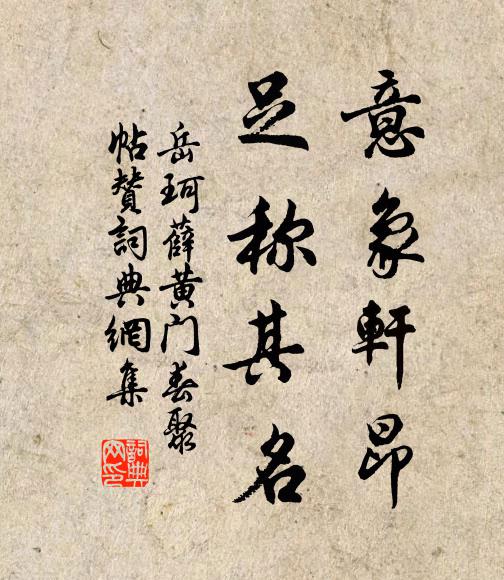 意象軒昂
足称其名
岳珂薛黄门春聚
帖赞詞典網集
詞典網印